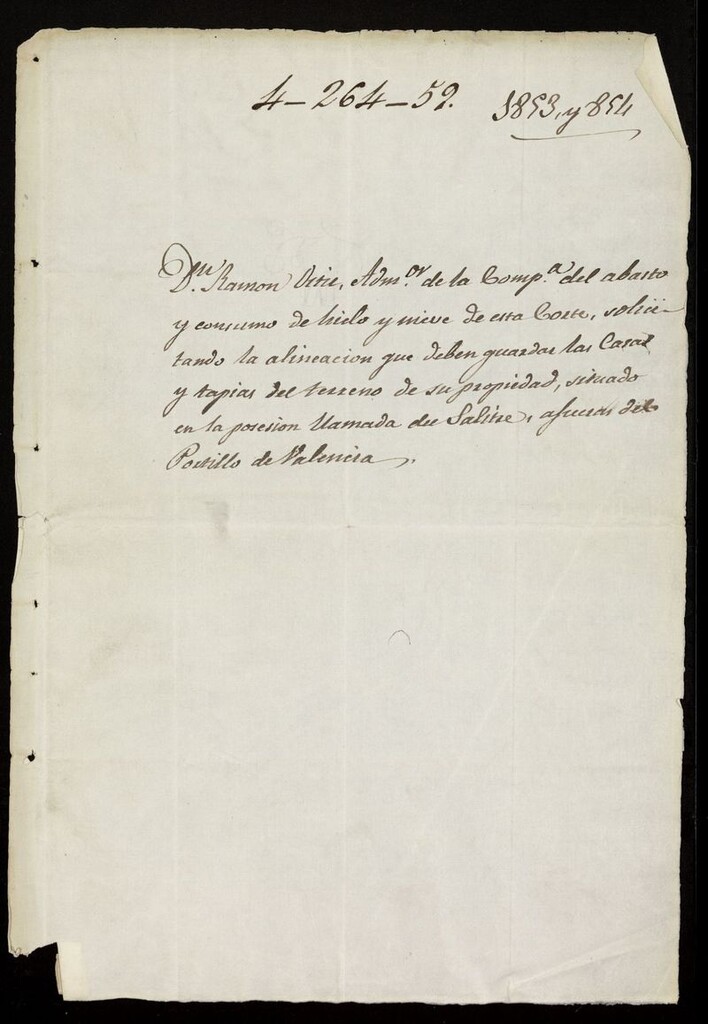 4-264-52. 1853, y 854
Dn. Ramon Ortiz, Admor. de la Compa. del abasto
y consumo de hielo y nieve de esta Corte, solici-
tando la alineacion que deben guardar las Casas
y tapias del terreno de su propiedad, situado
en la posesion llamada del Salitre, afueras del
Portillo de Valencia.